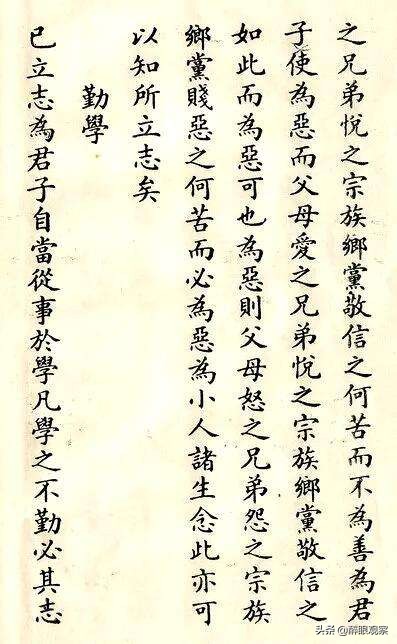 之兄弟悅之宗族鄉黨敬信之何苦而不為善為君
子使為惡而父母愛之兄弟悅之宗族鄉黨敬信之
如此而為惡可也為惡則父母怒之兄弟怨之宗族
鄉黨賤惡之何苦而必為惡為小人諸生念此亦可
以知所立志矣
勤學
已立志為君子自當從事於學凡學之不勤必其志
头条 @醉眼观察